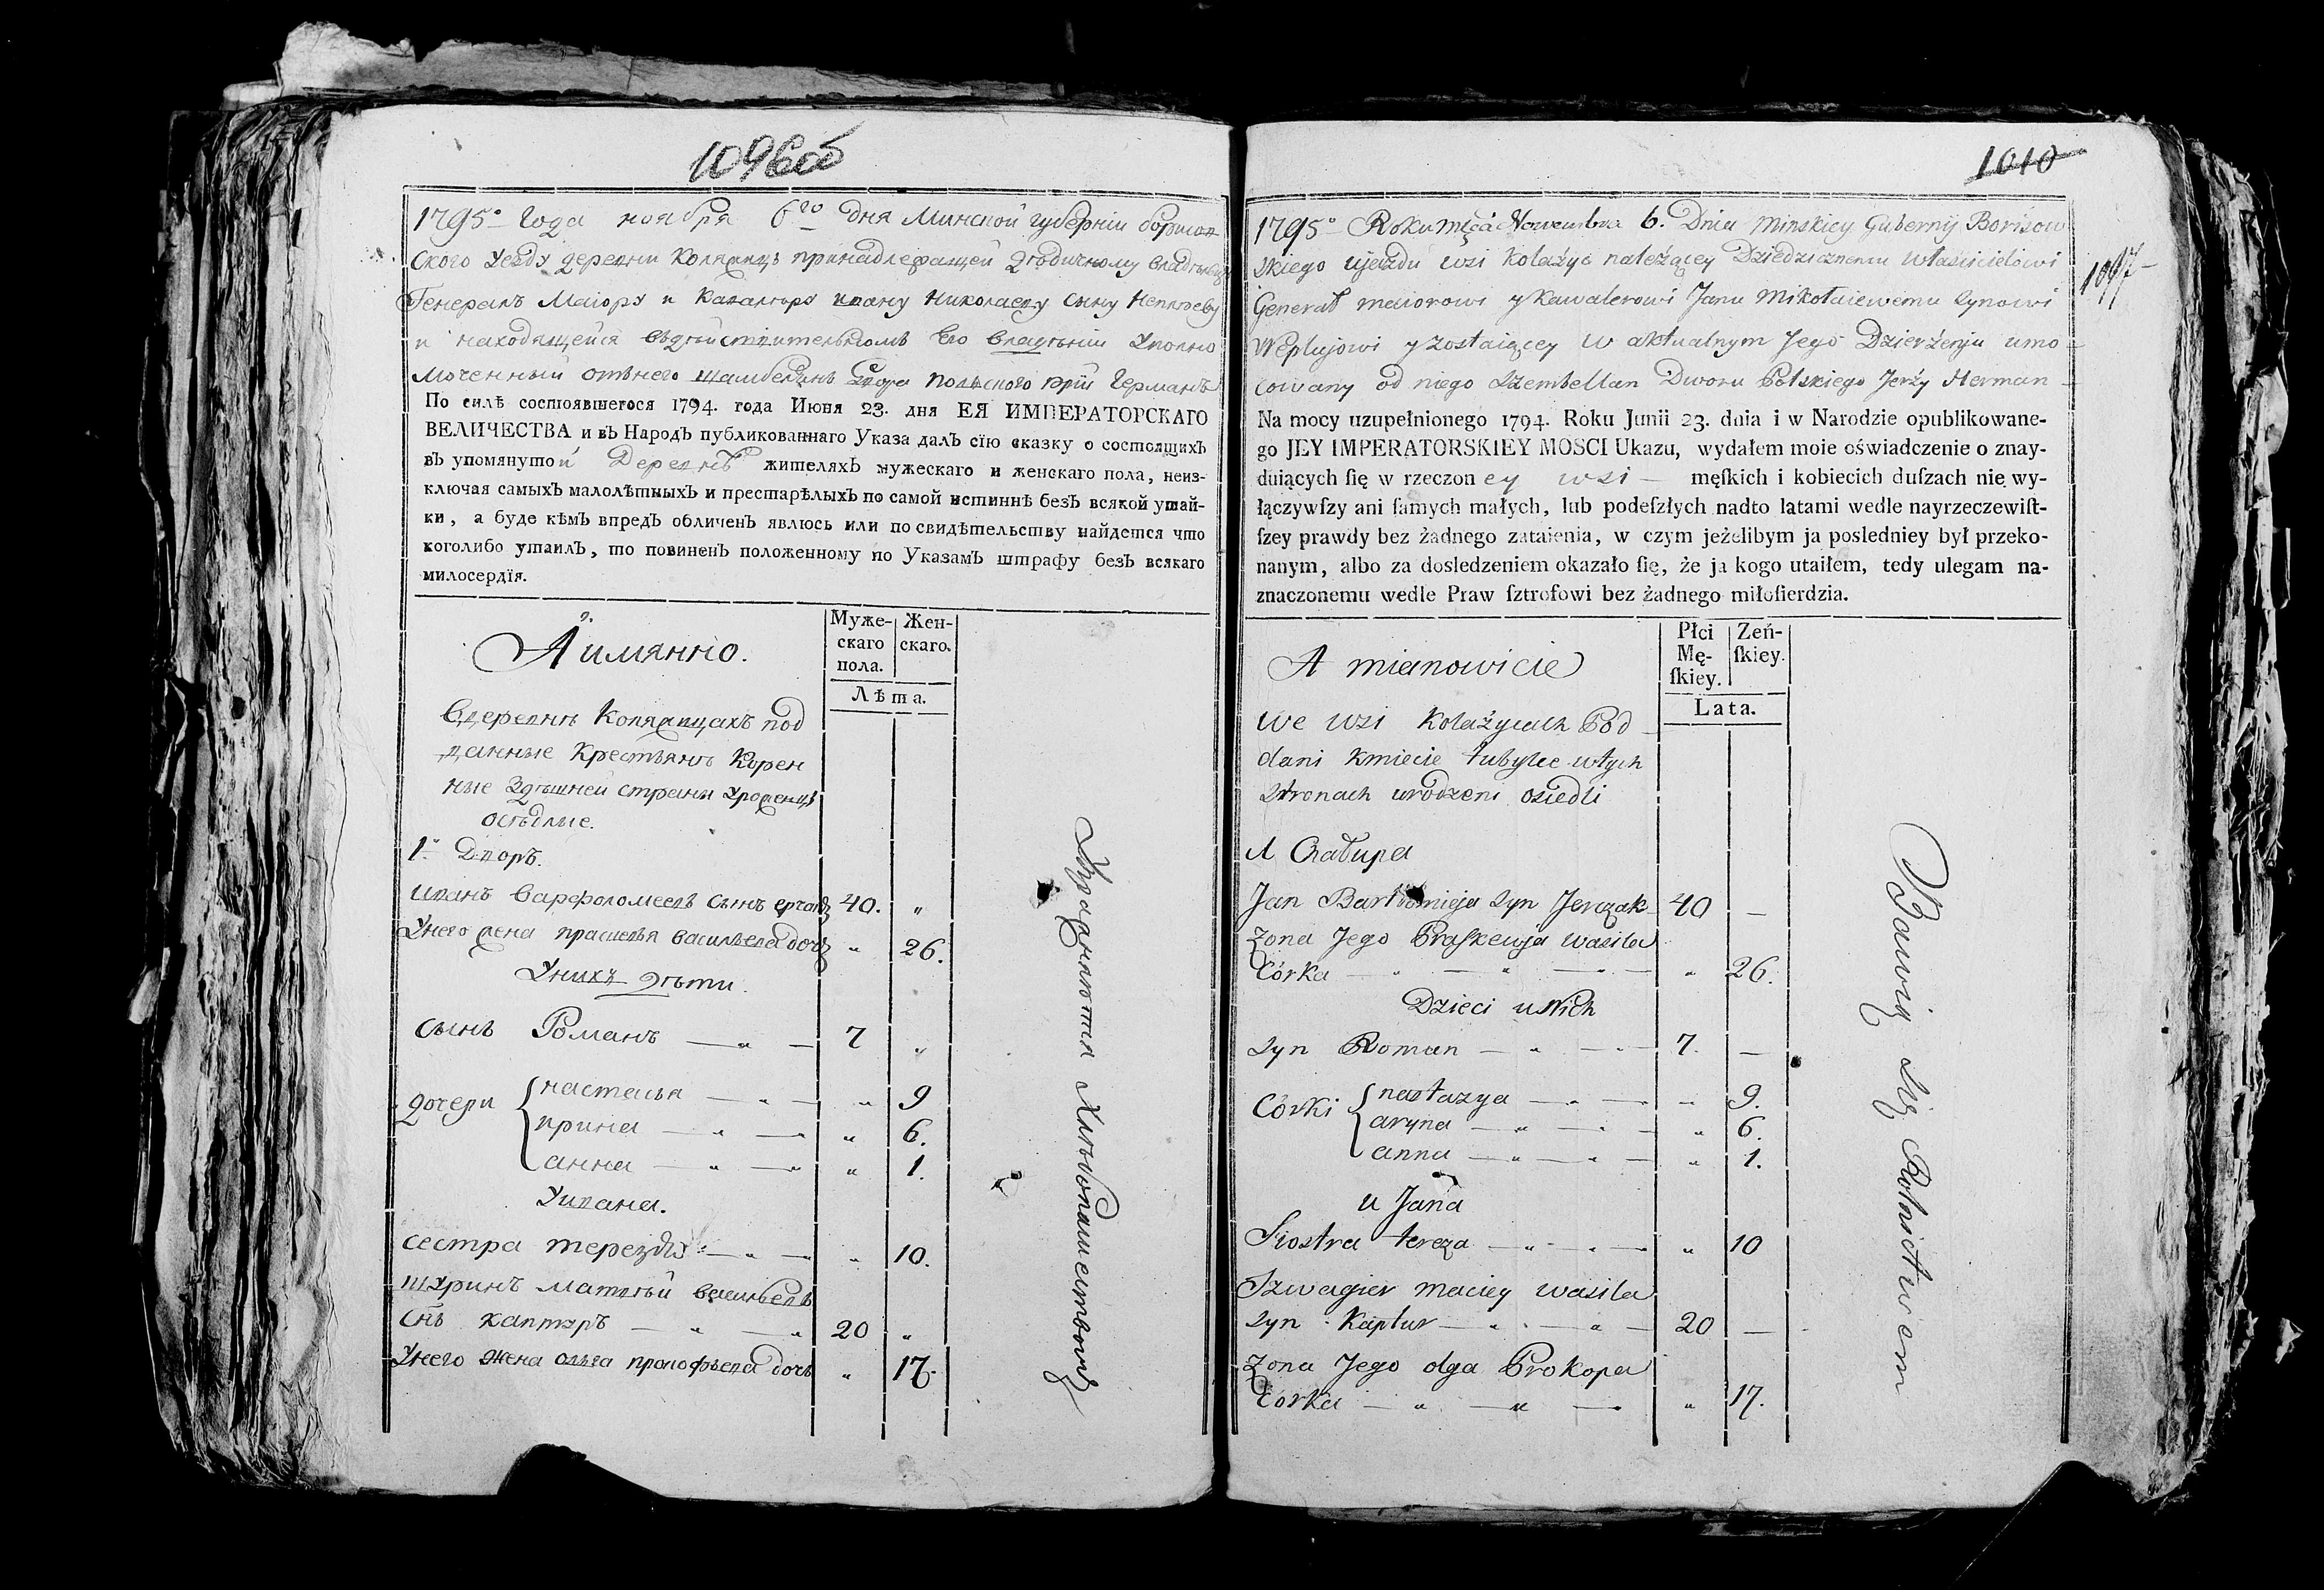 1096об
1795º Года ноября 6го дня Минской губерніи Борисов
ского уезду деревни Коляжицъ принадлежащей Дѣдичному владѣльцу
Генералъ Маіору и Кавалеру Ивану Николаеву сыну Неплюеву
и находящейся въдѣйствительномъ Его владѣніи Уполно
моченный отънего шамбелянъ Двора польского Юрій Германъ
По силѣ состоявшегося 1794. года Июня 23. дня ЕЯ ИМПЕРАТОРСКАГО
ВЕЛИЧЕСТВА и въ Народъ публикованнаго Указа далъ сїю сказку о состоящихъ
въ упомянутой Деревнѣ жителяхъ мужескаго и женскаго пола, неиз-
ключая самыхъ малолѣтныхъ и престарѣлыхъ по самой истиннѣ безъ всякой утай-
ки, а буде кѣмъ впредъ обличенъ явлюсь или по свидѣтельству найдется что
коголибо утаилъ, то повиненъ положенному по Указамъ штрафу безъ всякаго
милосердїя.
А имянно.
Муже-
скаго
пола.
Жен-
скаго.
Лѣта.
Вдеревнѣ Коляжицахъ под
данные Крестьянъ Корен
ные Здѣшней страны Уроженцы
осѣдлые.
1й Дворъ.
Иванъ Варфоломеевъ сынъ Ерчакъ 40. "
Унего жена прасковья васильева дочь " 26.
Унихъ дѣти.
сынъ Романъ — " — 7 "
дочери { настасья — " — " 9
ирина — " — " 6.
анна — " — " 1.
Уивана.
сестра терезья — " — " 10.
шуринъ матвѣй васильевъ
снъ каптуръ — " — " 20 "
Унего жена ольга прокофьева дочь " 17.
Упражняются Хлѣбопашествомъ
1010
1097
1795º Roku mca Novembra 6. Dnia Minskiey Gubernij Borisow
skiego ujezdu wsi Kolażyc należącey Dziedzicznemu właścicielowi
Generał maiorowi y Kawalerowi Janu Mikołaiewemu synowi
Neplujowi y zostaiącey w aktualnym Jego Dzierżenju umo
cowany od niego Szembellan Dworu Polskiego Jerży Herman
Na mocy uzupełnionego 1794. Roku Junii 23. dnia i w Narodzie opublikowane-
go JEY IMPERATORSKIEY MOSCI Ukazu, wydałem moie oświadczenie o znay-
duiących się w rzeczoney wsi — męſkich i kobiecich duſzach nie wy-
łączywſzy ani ſamych małych, lub podeſzłych nadto latami wedle nayrzeczewiſt-
ſzey prawdy bez żadnego zataienia, w czym jeżelibym ja posledniey był przeko-
nanym, albo za dosledzeniem okazało ſię, że ja kogo utaiłem, tedy ulegam na-
znaczonemu wedle Praw ſztrofowi bez żadnego miłoſierdzia.
A mianowicie
Płci
Mę-
ſkiey.
Zeń-
ſkiey.
Lata.
we wsi Kolażycach Pod
dani Kmiecie tubylce wtych
stronach urodzeni osiedli
A Chałupa
Jan Bartłomieja syn Jerczak 40 —
żona Jego Praskewja wasila
Córka — " — " — " 26.
Dzieci u Nich
syn Roman — " — 7. —
Córki { nastazya — " — " 9.
aryna — " — " 6.
anna — " — " 1.
u Jana
Siostra tereza — " — " 10
Szwagier maciey wasila
syn Kaptur — " — " — 20 —
żona Jego olga Prokopa
Córka — " — " — " 17.
Bawią się Rolnictwem